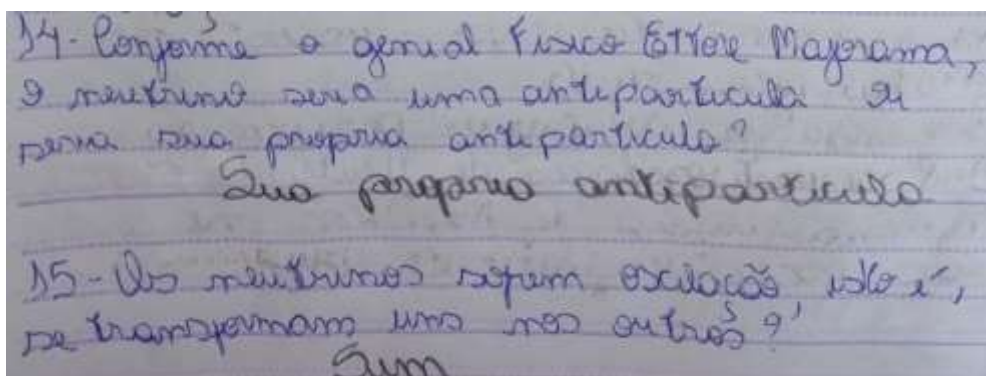 14- Conforme o genial Físico Ettore Majorama,
o neutrino seria uma antiparticula ou
seria sua propria antiparticula?
Sua propria antiparticula
15- Os neutrinos sofrem oscilação, isto é,
se transformam uns nos outros?
Sim